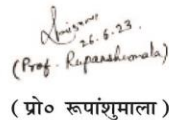 26.6.23
(Prof. Rupanshumala)
( प्रो० रूपांशुमाला )